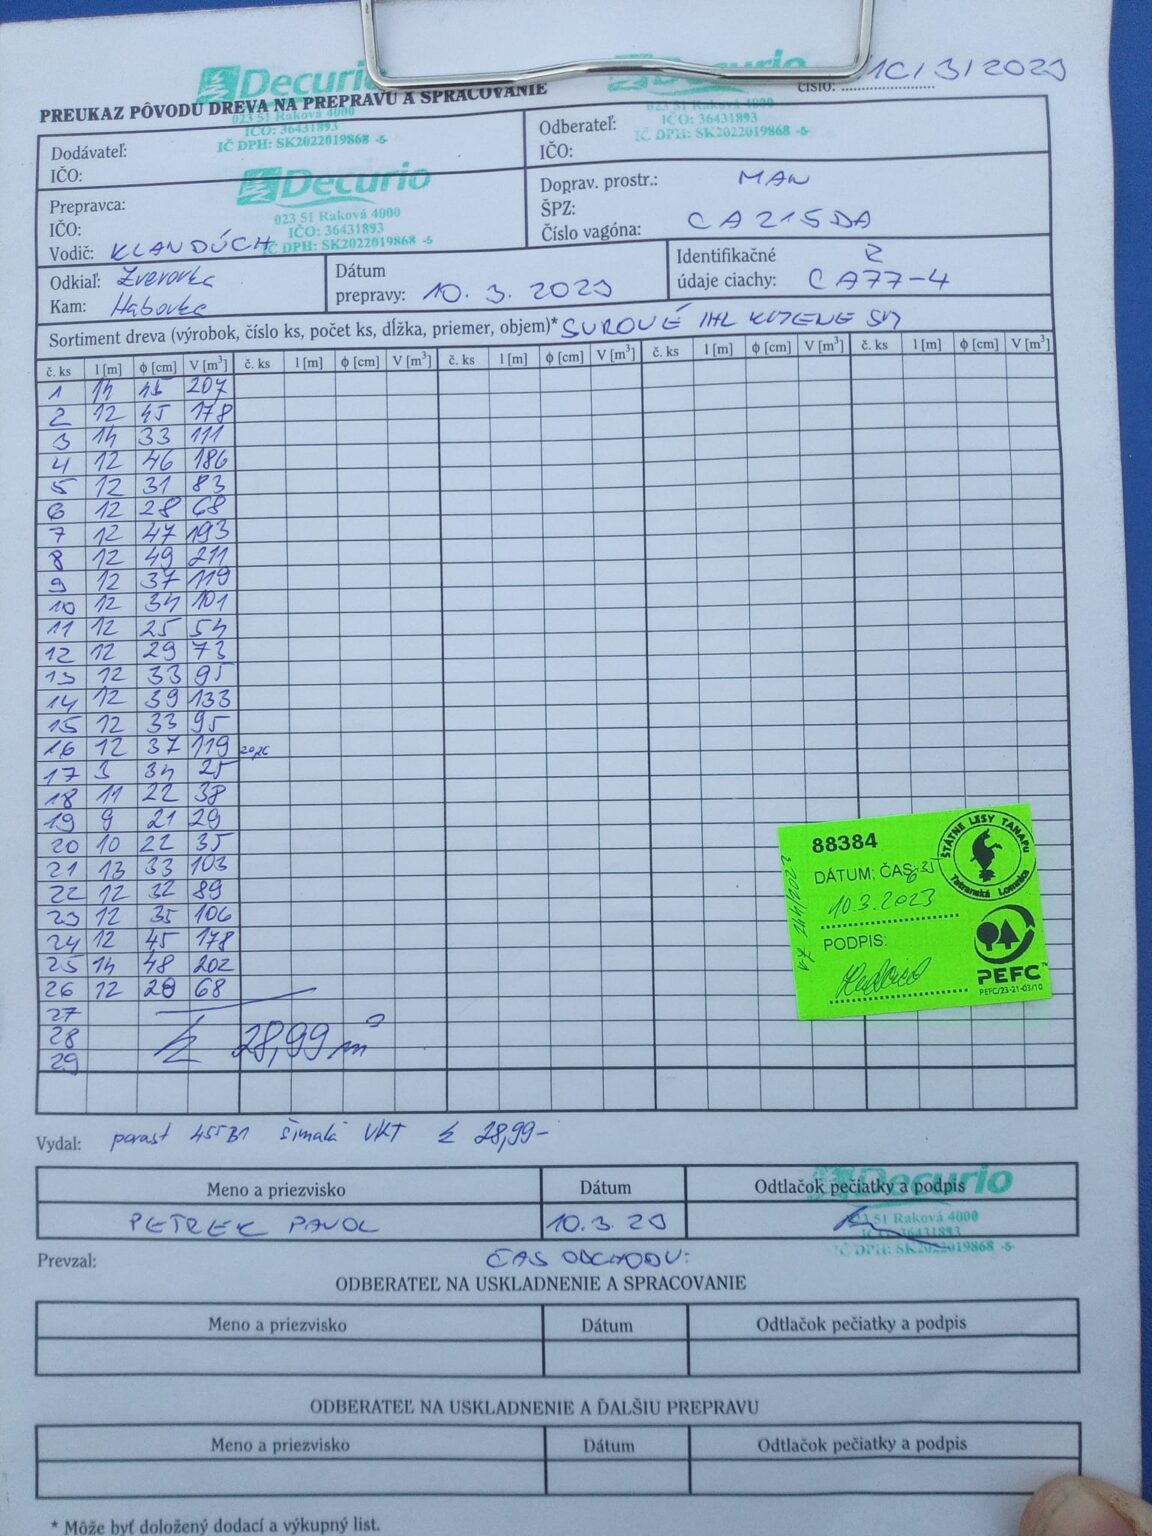 Decurio
Decurio
10/3/2023
ČÍSLO:
PREUKAZ PÔVODU DREVA NA PREPRAVU A SPRACOVANIE
023 51 Raková 4000
IČO: 36431893
IČ DPH: SK2022019868 -5-
023 51 Raková 4000
IČO: 36431893
IČ DPH: SK2022019868 -5-
Dodávateľ:
IČO:
Odberateľ:
IČO:
Decurio
023 51 Raková 4000
IČO: 36431893
IČ DPH: SK2022019868 -5
Prepravca:
IČO:
Vodič: KLANDÚCH
Doprav. prostr.: MAN
ŠPZ:
Číslo vagóna: CA215DA
Odkiaľ: Zverovka
Kam: Habovka
Dátum
prepravy: 10. 3. 2023
Identifikačné Z
údaje ciachy: CA77-4
Sortiment dreva (výrobok, číslo ks, počet ks, dĺžka, priemer, objem)* SUROVÉ IHL KMENE SM
č. ks l [m] ϕ [cm] V [m³] č. ks l [m] ϕ [cm] V [m³] č. ks l [m] ϕ [cm] V [m³] č. ks l [m] ϕ [cm] V [m³] č. ks l [m] ϕ [cm] V [m³]
1 14 45 207
2 12 45 178
3 14 33 111
4 12 46 186
5 12 31 83
6 12 28 68
7 12 47 193
8 12 49 211
9 12 37 119
10 12 34 101
11 12 25 54
12 12 29 73
13 12 33 95
14 12 39 133
15 12 33 95
16 12 37 119 20,26
17 3 34 25
18 11 22 38
19 9 21 29
20 10 22 35
21 13 33 103
22 12 32 89
23 12 35 106
24 12 45 178
25 14 48 202
26 12 28 68
27
28
29
Σ 28,99 m³
88384
ŠTÁTNE LESY TANAPu
Tatranská Lomnica
DÁTUM, ČAS:
10.3.2023
PODPIS:
PEFC™
PEFC/23-21-03/10
Vydal: porast 455B1 Šimalá VKT Σ 28,99-
Meno a priezvisko Dátum Odtlačok pečiatky a podpis
PETREK PAVOL 10.3.23
Decurio
023 51 Raková 4000
IČO: 36431893
IČ DPH: SK2022019868 -5-
Prevzal: ČAS ODCHODU:
ODBERATEĽ NA USKLADNENIE A SPRACOVANIE
Meno a priezvisko Dátum Odtlačok pečiatky a podpis
ODBERATEĽ NA USKLADNENIE A ĎALŠIU PREPRAVU
Meno a priezvisko Dátum Odtlačok pečiatky a podpis
* Môže byť doložený dodací a výkupný list.